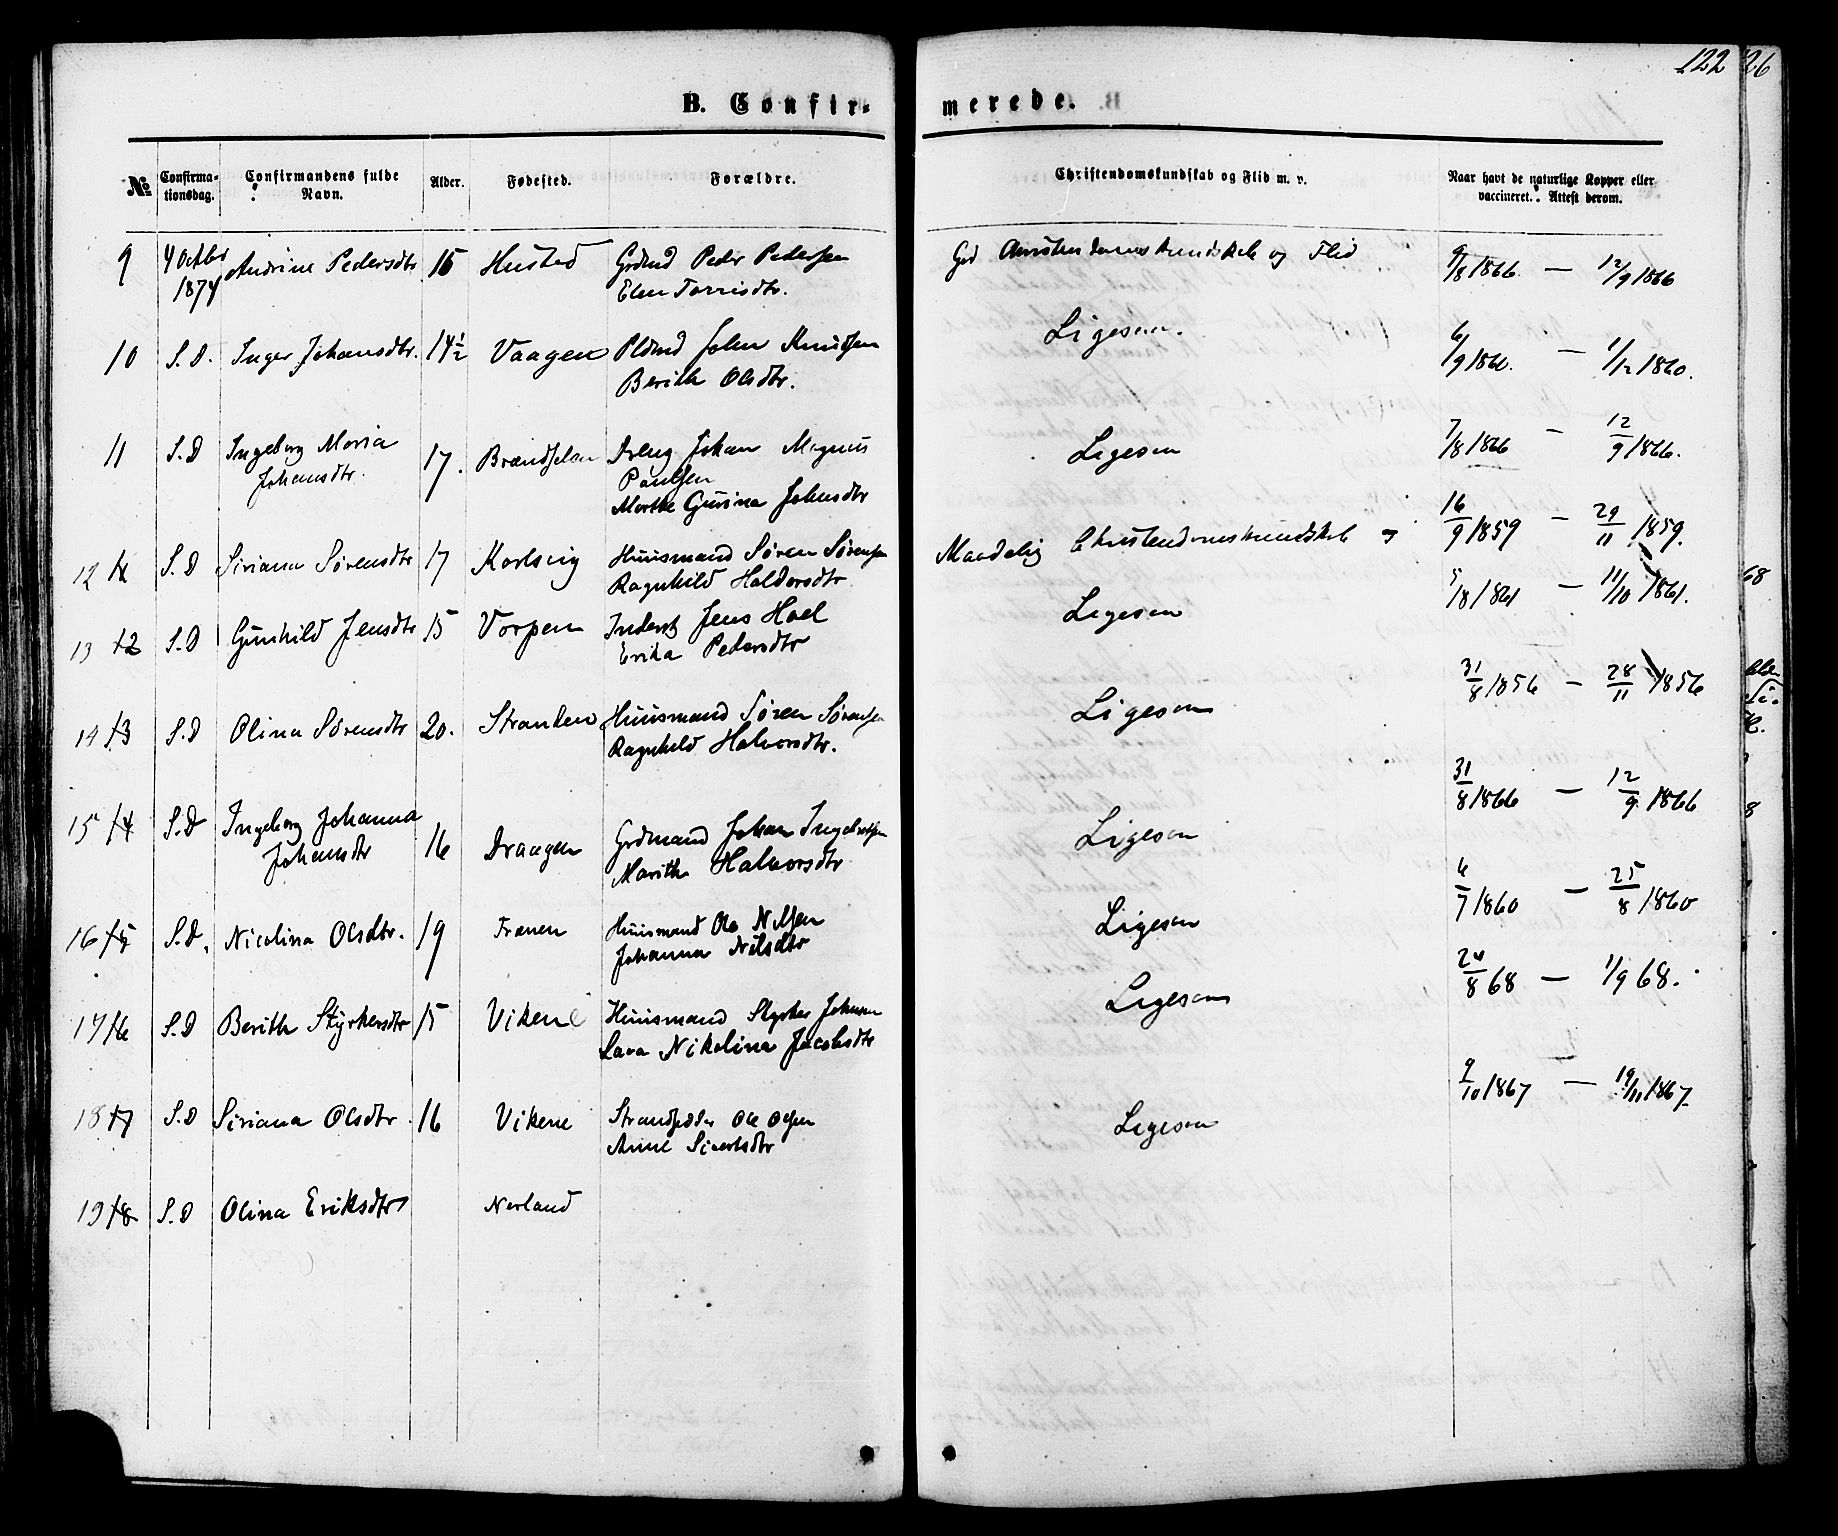 122 26
B. Confir-
merede.
No
Confirma-
tionsdag.
Confirmandens fulde
Navn.
Alder.
Fødested.
Forældre.
Christendomskundskab og Flid m. v.
Naar havt de naturlige Kopper eller
vaccineret. Attest derom.
9 4 Octbr Andrine Pedersdtr 15 Husted Grdmd Peder Pedersen God Christendomskundskab og Flid 9/8 1866 — 12/9 1866
1874 Elen Torrisdtr.
10 S. D. Inger Johansdtr. 14½ Vaagen Plsmd John Knudsen Ligesom. 6/9 1860. — 1/12 1860.
Berith Olsdtr.
11 S. D Ingeborg Maria 17. Johan Magnus Ligesom 7/8 1866 — 12/9 1866.
Johansdtr. Paulsen
Marthe Gurina Johnsdtr
12 S. D Siriana Sørensdtr 17 Karlsvig Huusmand Søren Sørensen Maadelig Christendomskundskab 16/9 1859 — 29/11 1859.
Ragnhild Haldorsdtr
13 12 S. D Gunhild Jensdtr 15 Vorpen Inderst Jens Hoel Ligesom 5/8 1861 — 11/10 1861.
Erika Pedersdtr
14 13 S. D Olina Sørensdtr 20. Stranden Huusmand Søren Sørensen Ligesom 31/8 1856 — 28/11 1856
Ragnhild Halvorsdtr.
15 14 S. D Ingeborg Johanna 16 Draagen Grdmand Johan Ligesom 31/8 1866 — 12/9 1866
Johansdtr Marith Halvorsdtr
16 15 S. D. Nicolina Olsdtr. 19 Frænen Huusmand Ole Nilsen Ligesom 6/7 1860 — 25/8 1860
Johanna Nilsdtr
17 16 S. D Berith Styrkersdtr 15 Vikene Huusmand Styrker Johnsen Ligesom 24/8 68 — 1/9 68.
Lava Nikolina Jacobsdtr
18 17 S. D Siriana Olsdtr 16 Vikene Strandsidder Ole Olsen Ligesom 9/10 1867 — 19/11 1867.
Anne Sivertsdtr
19 18 S. D Olina Eriksdtr Nerland
68
8